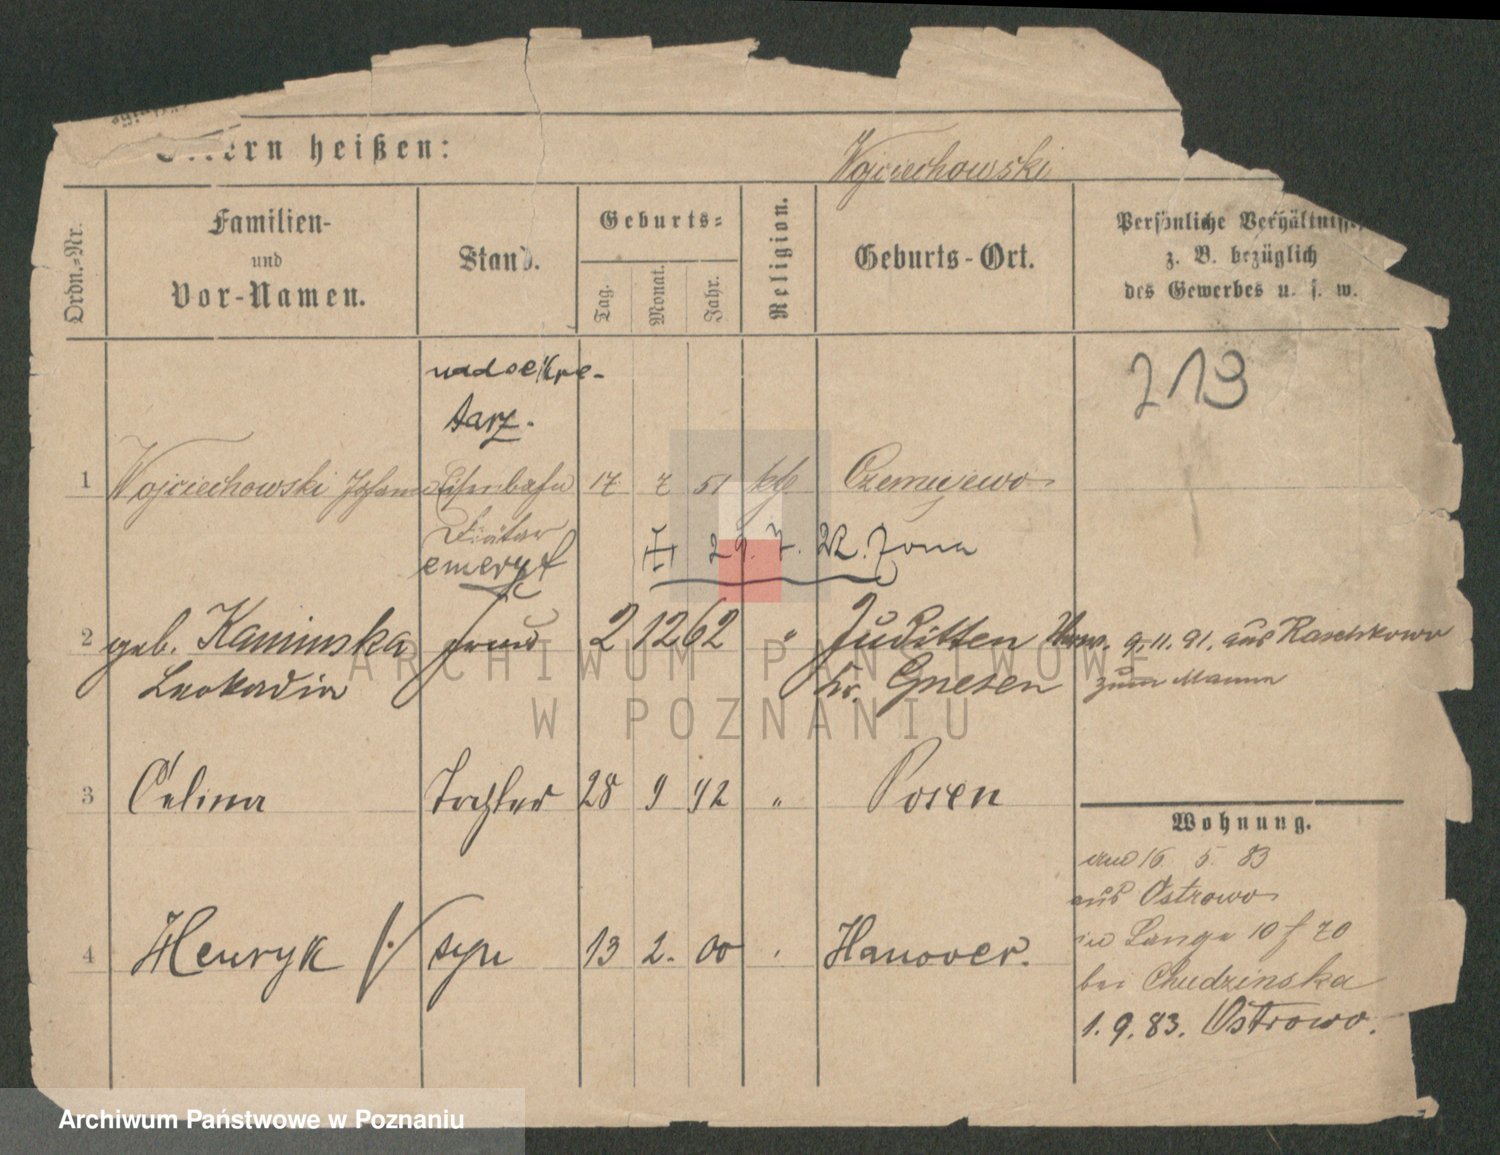 heißen:
Wojciechowski
Ordn.-Nr.
Familien-
und
Vor-Namen.
Stand.
Geburts-
Tag.
Monat.
Jahr.
Religion.
Geburts-Ort.
Persönliche Verhältnisse
z. B. bezüglich
des Gewerbes u. s. w.
213
nadsekre-
tarz.
1 Wojciechowski Johann Eisenbahn 17 7 51 kth Czerniejewo
Diätar
emeryt
29. 7. 22. żona
2 geb. Kaminska Frau 2 12 62 " Juditten 9.11.91. aus Raschkowo
Leokadia Kr. Gnesen zum Manne
3 Celina Tochter 28 9 92 " Posen
Wohnung.
16. 5. 83
aus Ostrowo
4 Henryk syn 13 2. 00 Hanover.
Lange 10 f 20
bei Chudzinska
1. 9. 83. Ostrowo.
ARCHIWUM PAŃSTWOWE
W POZNANIU
Archiwum Państwowe w Poznaniu